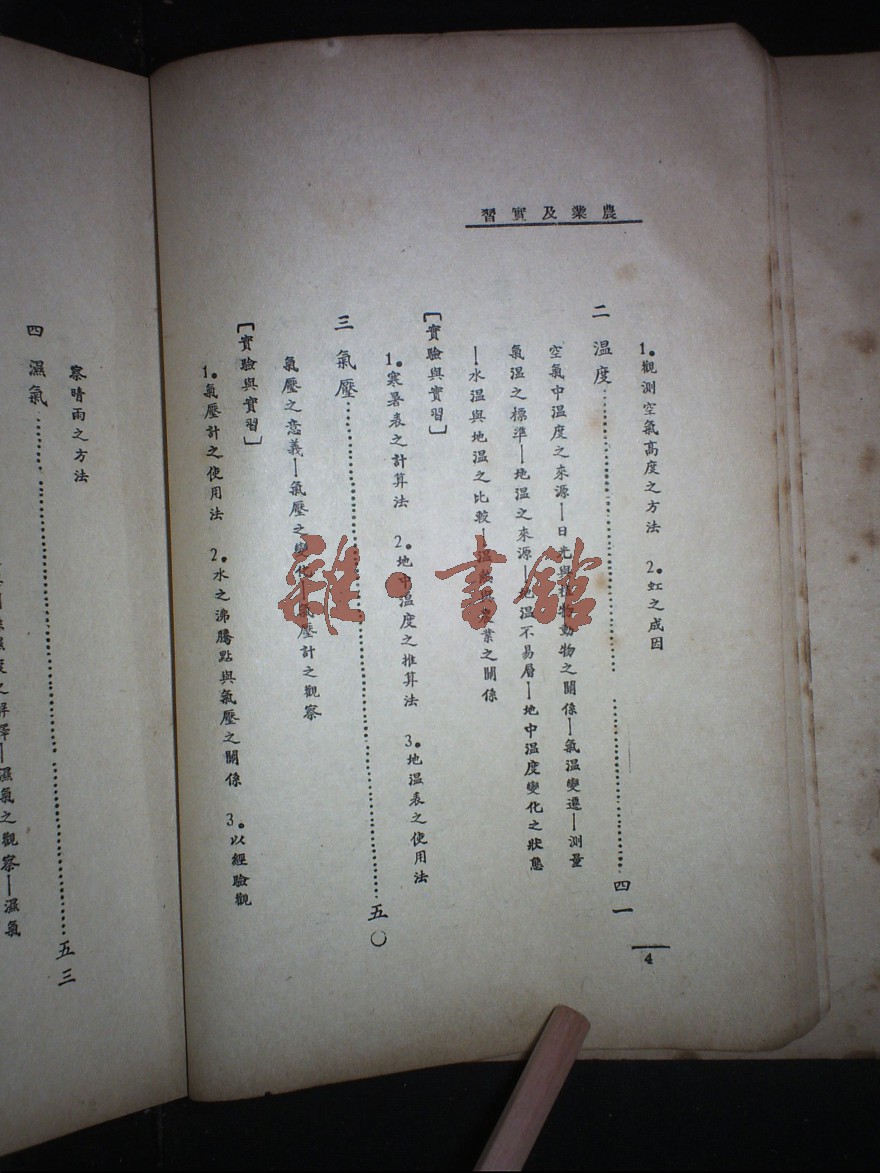 農業及實習
1.觀測空氣高度之方法 2.虹之成因
二 溫度 四一
空氣中溫度之來源—日光與植物動物之關係—氣溫變遷—測量
氣溫之標準—地溫之來源—地溫不易層—地中溫度變化之狀態
—水溫與地溫之比較—溫熱與農業之關係
[實驗與實習]
1.寒暑表之計算法 2.地中溫度之推算法 3.地溫表之使用法
三 氣壓 五〇
氣壓之意義—氣壓之變化—氣壓計之觀察
[實驗與實習]
1.氣壓計之使用法 2.水之沸騰點與氣壓之關係 3.以經驗觀
4
察晴雨之方法
四 濕氣 五三
濕度之解釋—濕氣之觀察—濕氣
雜·書館